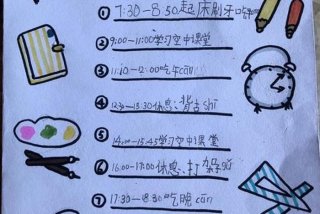 ① 7:30-8:50起床刷牙吃
② 9:00-11:00学习空中课堂
③ 11:10-12:00吃午cān
④ 12:30-13:30休息:背古shī
⑤ 14:00-15:45学习空中课堂
⑥ 16:00-17:00休息、打
⑦ 17:30-18:30吃晚cān